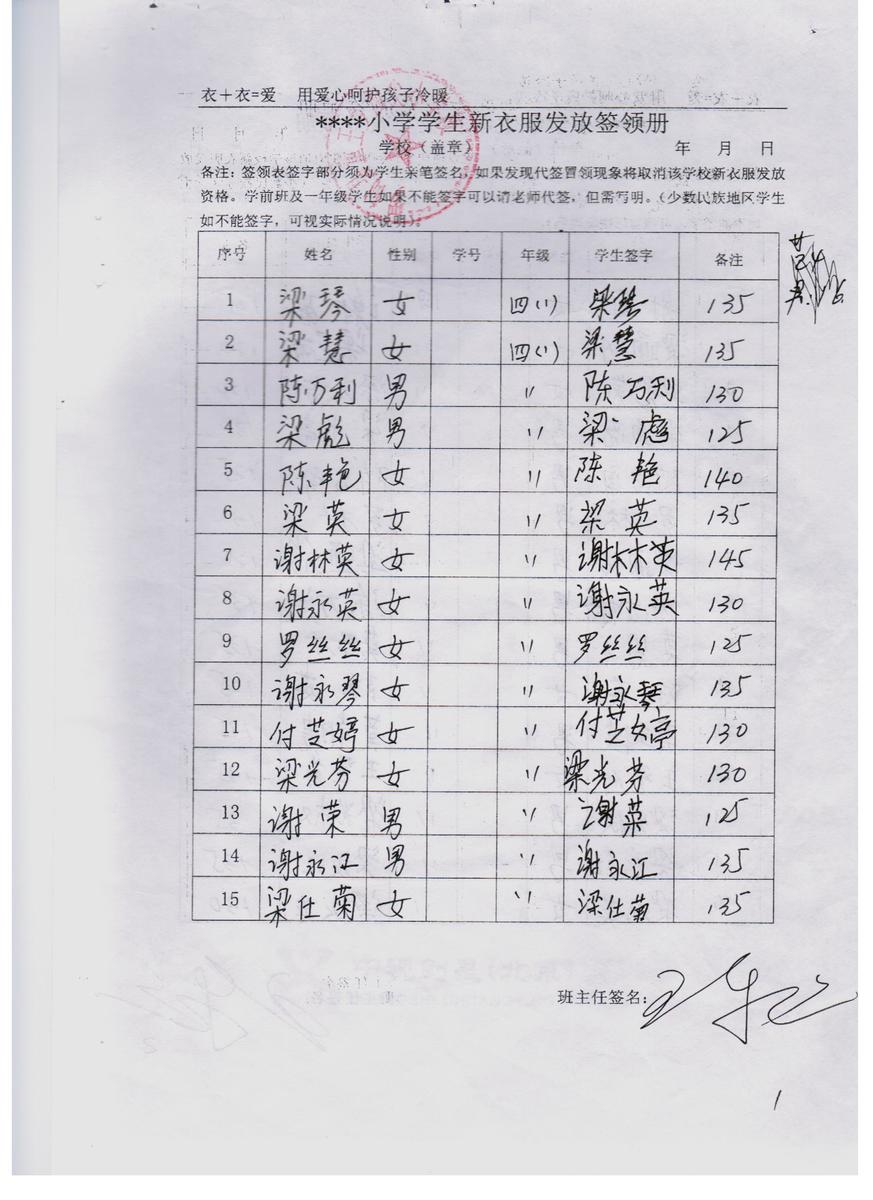 衣+衣=爱 用爱心呵护孩子冷暖
****小学学生新衣服发放签领册
学校(盖章) 年 月 日
备注:签领表签字部分须为学生亲笔签名,如果发现代签冒领现象将取消该学校新衣服发放
资格。学前班及一年级学生如果不能签字可以请老师代签,但需写明。(少数民族地区学生
如不能签字,可视实际情况说明)。
序号 姓名 性别 学号 年级 学生签字 备注
1 梁琴 女 四(1) 梁琴 135
2 梁慧 女 四(1) 梁慧 135
3 陈万利 男 〃 陈万利 130
4 梁彪 男 〃 梁彪 125
5 陈艳 女 〃 陈艳 140
6 梁英 女 〃 梁英 135
7 谢林英 女 〃 谢林英 145
8 谢永英 女 〃 谢永英 130
9 罗丝丝 女 〃 罗丝丝 125
10 谢永琴 女 〃 谢永琴 135
11 付芝婷 女 〃 付芝婷 130
12 梁光芬 女 〃 梁光芬 130
13 谢荣 男 〃 谢荣 125
14 谢永江 男 〃 谢永江 135
15 梁仕菊 女 〃 梁仕菊 135
班主任签名:
1